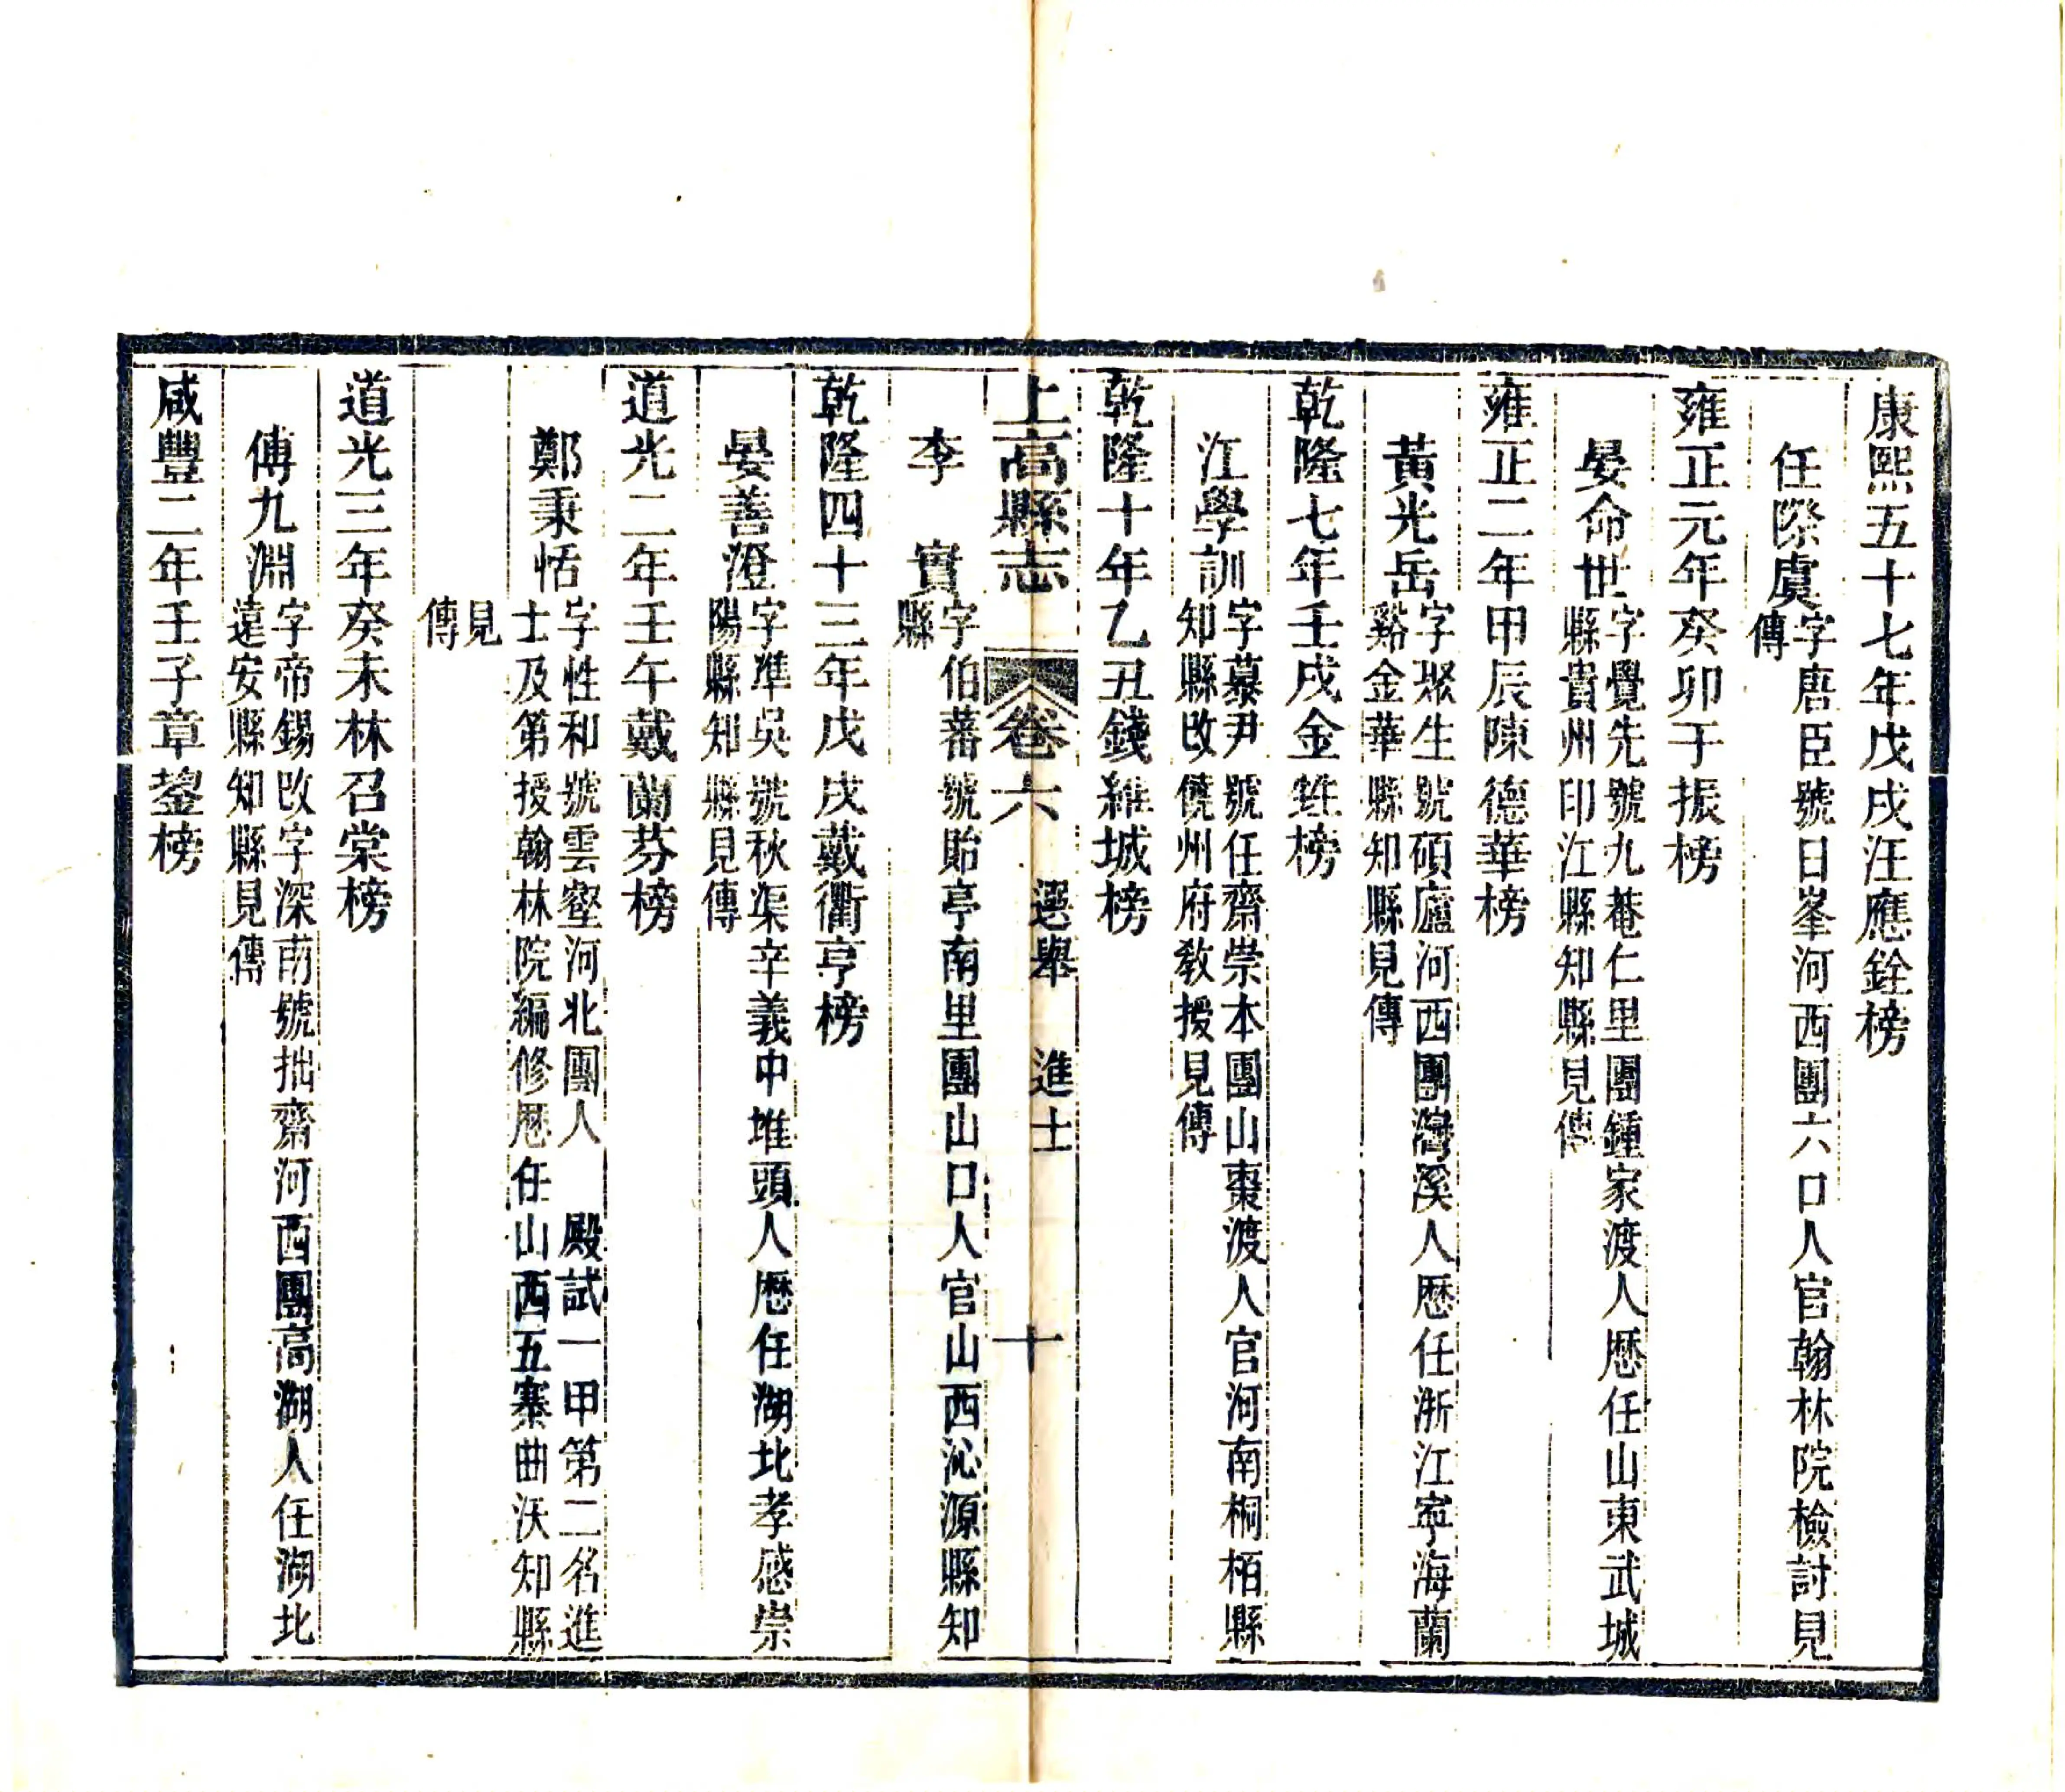 康熙五十七年戊戌汪應銓榜
任際虞
字唐臣號日峯河西團六口人官翰林院檢討見
傳
雍正元年癸卯于振榜
晏命世
字覺先號九菴仁里團鍾家渡人歷任山東武城
縣貴州印江縣知縣見傳
雍正二年甲辰陳德華榜
黃光岳
字聚生號碩廬河西團灣溪人歷任浙江寧海蘭
谿金華縣知縣見傳
乾隆七年壬戌金甡榜
江學訓
字慕尹號任齋崇本團山棗渡人官河南桐栢縣
知縣改饒州府敎授見傳
乾隆十年乙丑錢維城榜
上高縣志
卷六
選舉 進士
十
李 實
字伯蕃號貽亭南里團山口人官山西沁源縣知
縣
乾隆四十三年戊戌戴衢亨榜
晏善澄
字準吳號秋渠辛義中堆頭人歷任湖北孝感崇
陽縣知縣見傳
道光二年壬午戴蘭芬榜
鄭秉恬
字性和號雲壑河北團人 殿試一甲第二名進
士及第授翰林院編修歷任山西五寨曲沃知縣
見
傳
道光三年癸未林召棠榜
傅九淵
字帝錫改字深甫號拙齋河西團高湖人任湖北
遠安縣知縣見傳
咸豐二年壬子章鋆榜